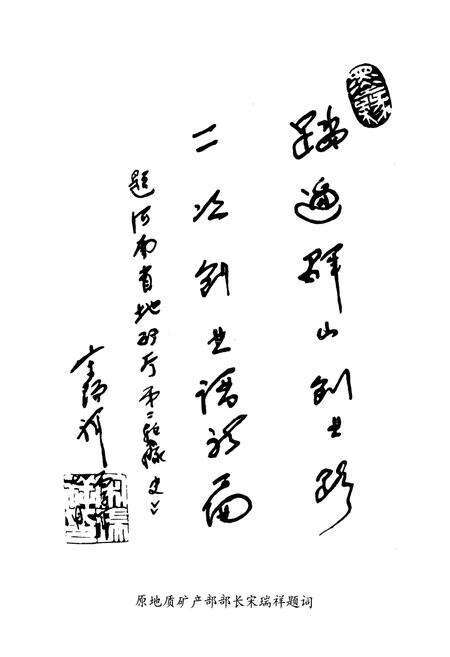 踏遍群山创业路
二次创业谱新篇
题河南省地矿厅第二队史》
宋瑞祥
原地质矿产部部长宋瑞祥题词